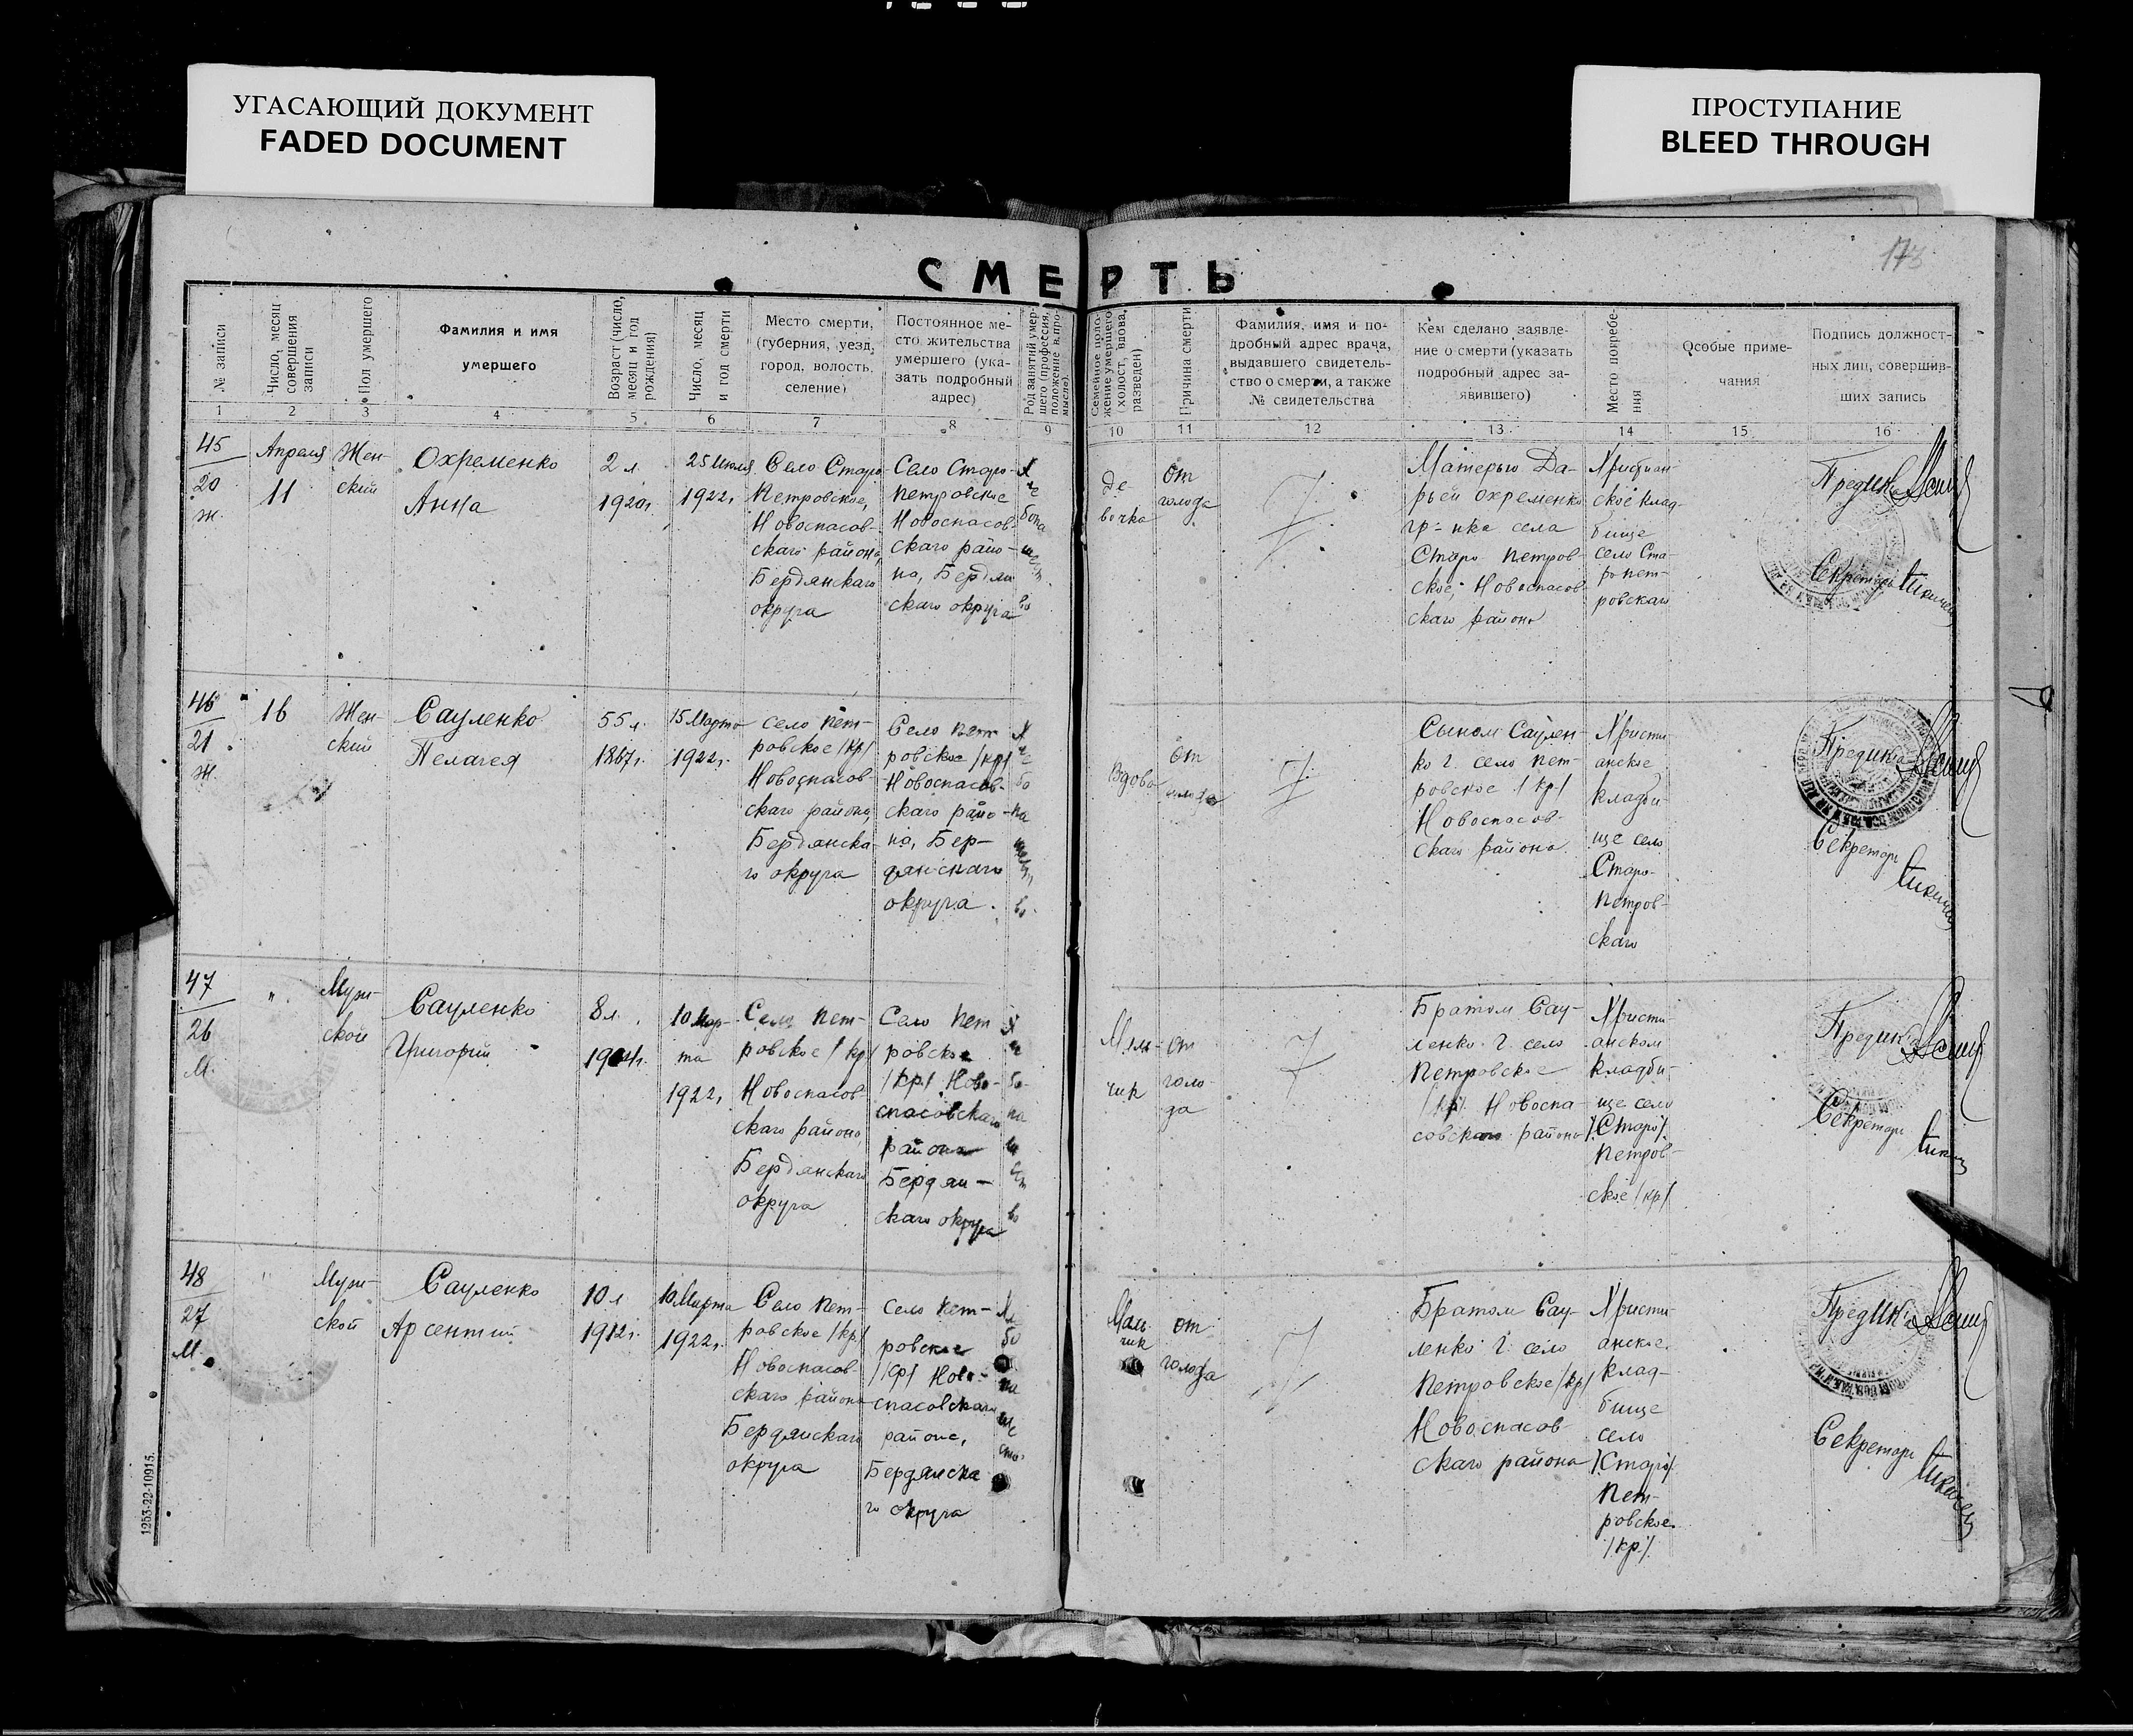 УГАСАЮЩИЙ ДОКУМЕНТ
FADED DOCUMENT
ПРОСТУПАНИЕ
BLEED THROUGH
173
СМЕРТЬ
№ записи
Число, месяц
совершения
записи
Пол умершего
Фамилия и имя
умершего
Возраст (число,
месяц и год
рождения)
Число, месяц
и год смерти
Место смерти,
(губерния, уезд,
город, волость,
селение)
Постоянное ме-
сто жительства
умершего (ука-
зать подробный
адрес)
Род занятий умер-
шего (профессия,
положение в про-
мысле).
Семейное поло-
жение умершего
(холост, вдова,
разведен)
Причина смерти
Фамилия, имя и по-
дробный адрес врача,
выдавшего свидетель-
ство о смерти, а также
№ свидетельства
Кем сделано заявле-
ние о смерти (указать
подробный адрес за-
явившего)
Место погребе-
ния
Особые приме-
чания
Подпись должност-
ных лиц, совершив-
ших запись
1 2 3 4 5 6 7 8 9 10 11 12 13 14 15 16
45
20
ж.
Апреля
11
Жен-
ский
Охременко
Анна
2 л.
1920г.
25 Июля
1922г.
Село Старо
Петровское,
Новоспасов-
скаго района,
Бердянскаго
округа
Село Старо-
петровское
Новоспасов-
скаго райо-
на, Бердян
скаго округа
Де
вочка
от
голода
Матерью Да-
рьей Охременко
гр-нка села
Старо Петров-
ское, Новоспасов
скаго района
Христиан-
ское клад-
бище
село Ста-
ропет-
ровскаго
Секретарь
46
21
ж.
16
Жен-
ский
Сауленко
Пелагея
55 л.
1867г.
15 Марта
1922г.
село Пет-
ровское /кр/
Новоспасов-
скаго района,
Бердянска-
го округа
Село Пет
ровское /кр/
Новоспасов-
скаго райо-
на, Бер-
дянскаго
округа.
Вдова
от
голода
Сыном Саулен-
ко Г. село Пет-
ровское /кр/
Новоспасов-
скаго района.
Христи
анское
кладби-
ще село
Старо-
Петров-
скаго
Секретарь
47
26
М.
"
Муж-
ской
Сауленко
Григорий
8 л.
10 Мар-
та
1922г.
Село Пет-
ровское /кр/
Новоспасов
скаго района,
Бердянскаго
округа
Село Пет
ровское
/кр/ Ново-
спасовскаго
района
Бердян-
скаго округа
Маль-
чик
от
голо-
да
Братом Сау-
ленко Г. село
Петровское
/кр/. Новоспа-
совскаго района
Христи
анском
кладби-
ще село
/Старо/
Петров-
ское /кр/
Секретарь
48
27
М.
"
Муж-
ской
Сауленко
Арсентий
10 л
1912г.
10 Марта
1922г.
Село Пет-
ровское /кр/
Новоспасов
скаго района
Бердянскаго
округа
село Пет-
ровское
/кр/ Ново-
спасовскаго
района,
Бердянска
го округа
Маль
чик
от
голода
Братом Сау-
ленко Г. село
Петровское /кр/
Новоспасов-
скаго района
Христи
анское
клад-
бище
село
/Старо/
Пет-
ровское
/кр/.
Секретарь
1253-22-10915.